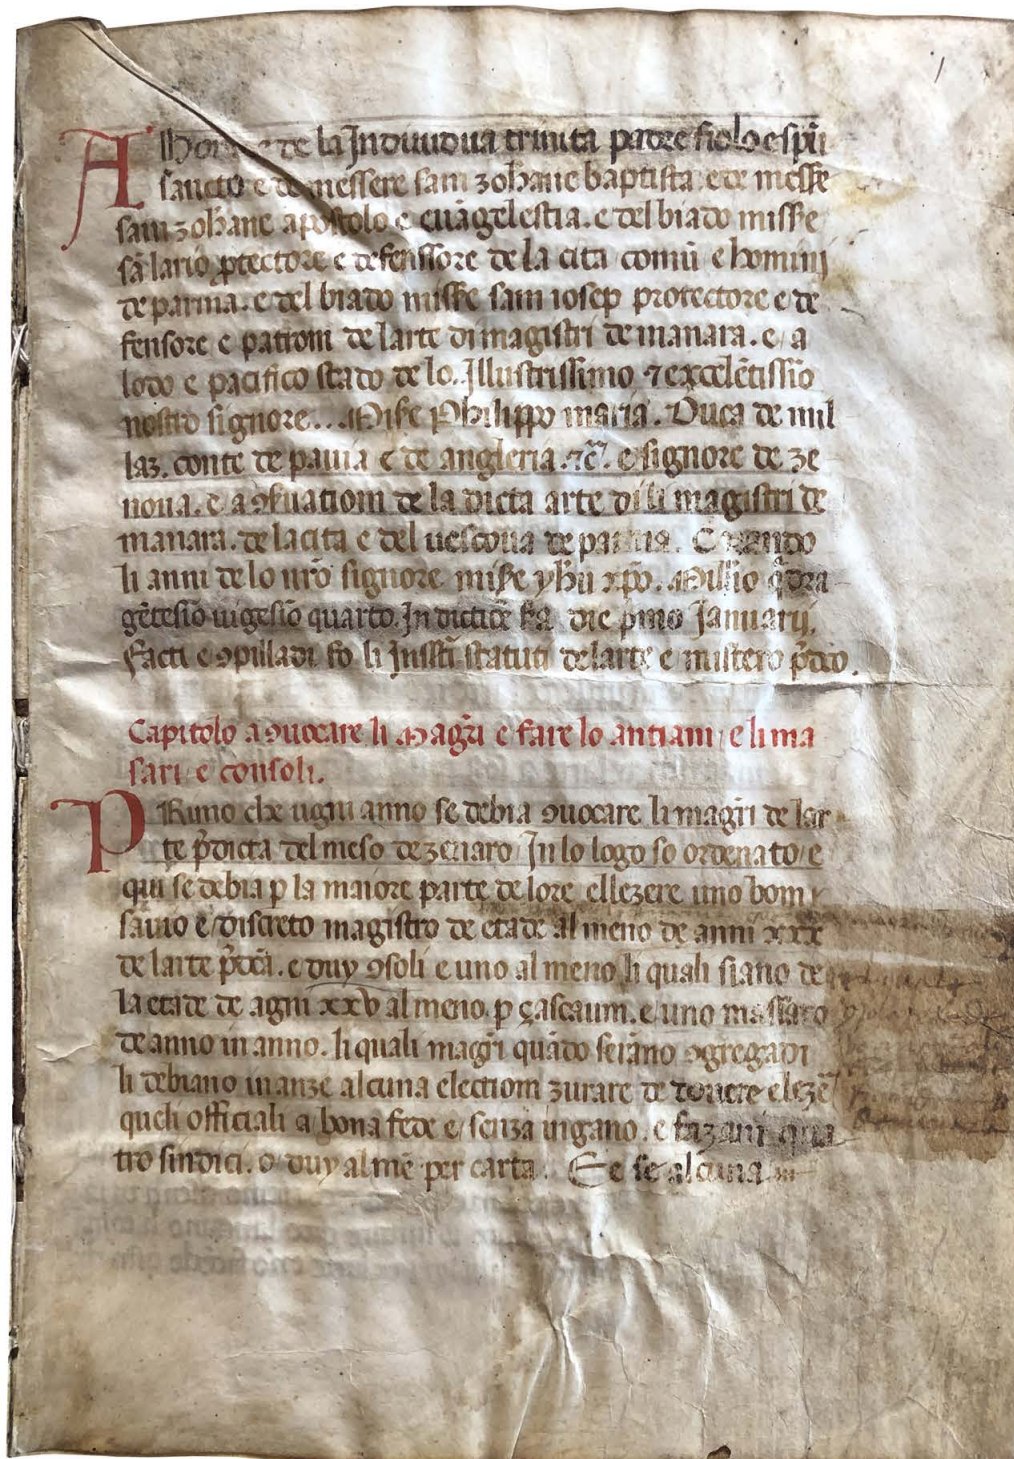 A lhonore de la Indiuidua trinita padre fiolo e spũ
sancto e de messere sam zohane baptista. e de messe
sam zohane apostolo e euãgelestia. e del biado misse
sã lario ꝓtectore e defenssore de la cita comũ e homini
de parma. e del biado misse sam iosep protectore e de
fensore e patrom de larte di magistri de manara. e/ a
lodo e pacifico stado de lo. Illustrissimo ⁊ excelẽtissĩo
nostro signore... Misẽ Philippo maria. Duca de mil
laz. conte de pauia e de angleria. ⁊c̃. e signore de ze
noua. e a ꝯẜuatiom de la dicta arte di li magistri de
manara. de la cita e del uescoua de parma. Corando
li anni de lo nr̃o signore misẽ yhũ xp̃o. Millĩo q̃dra
gẽtesĩo uigesĩo quarto. Indictiõe die p̃mo Januarij.
Facti e ꝯpilladi fo li statuti de larte e mistero p̃dc̃o.
Capitolo a ꝯuocare li Magr̃i e faire lo antiani / e li ma
sari / e consoli.
PRimo che ugni anno se debia ꝯuocare li magr̃i de lar
te p̃dicta del meso de zenaro / In lo logo so ordenato / e
qui se debia p la maiore parte de lore ellezere uno bom
sauio e / discreto magistro de etade al meno de anni xxx
de larte p̃dc̃a. e duy ꝯsoli e uno al meno li quali siano de
la etade de agni xxv al meno. p çascaum. e / uno massaro
de anno in anno. li quali magr̃i quãdo serãno ꝯgregadi
li debiano inanze alcuna electiom zurare de touere elezẽ
queli officiali a / bona fede e / senza ingano. e fazani qua
tro sindici. o duy al mẽ per carta. Se se alcuna